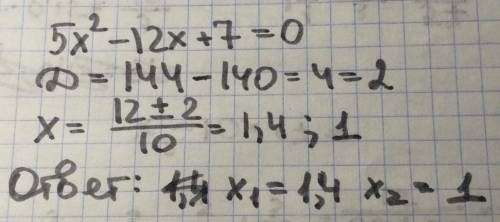 5x² - 12x + 7 = 0
D = 144 - 140 = 4 = 2
x = (12 ± 2)/10 = 1,4 ; 1
Ответ: x₁ = 1,4 x₂ = 1